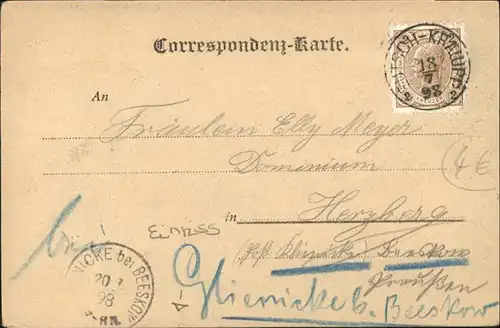 Correspondenz-Karte.
13
7
98
An
Fräulein Elly Meyer
Dominium
in Herzberg
(Post Klienicke) Beeskow
Preußen
Glienicke b. Beeskow
Einriss
4€
NICKE bei BEESKOW
20 7
98